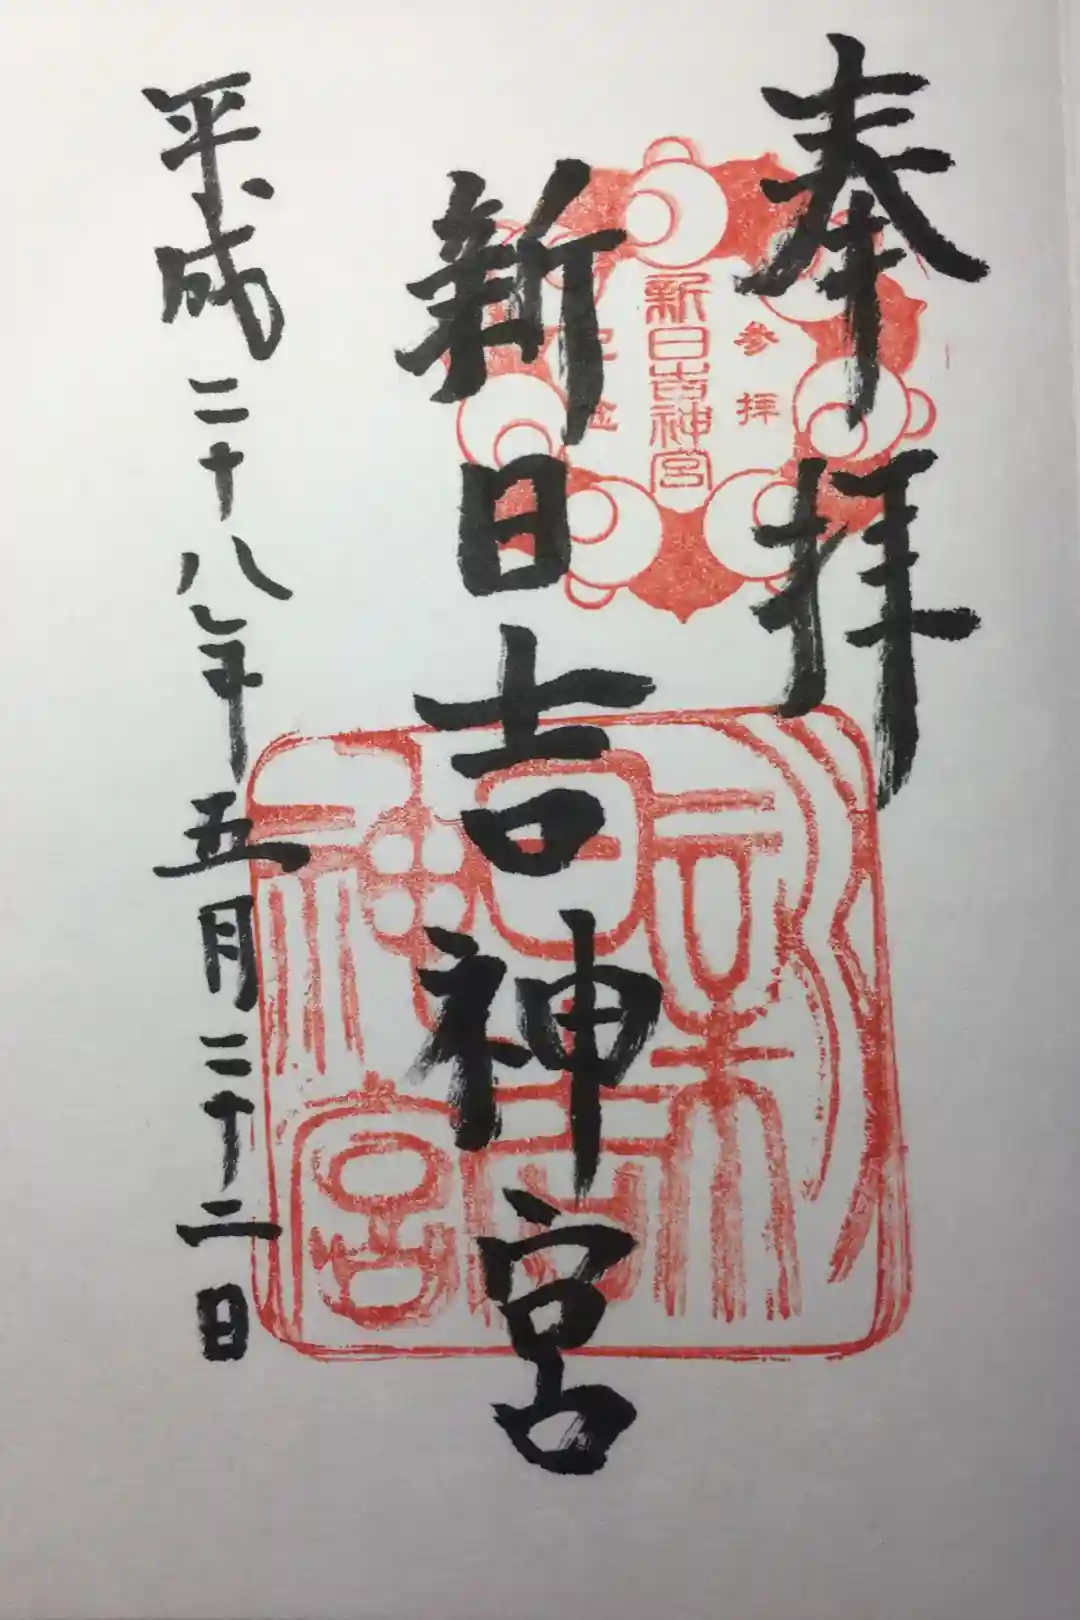 奉拝
参拝
新日吉神宮
新日吉神宮
新日吉神宮
平成二十八年五月二十二日